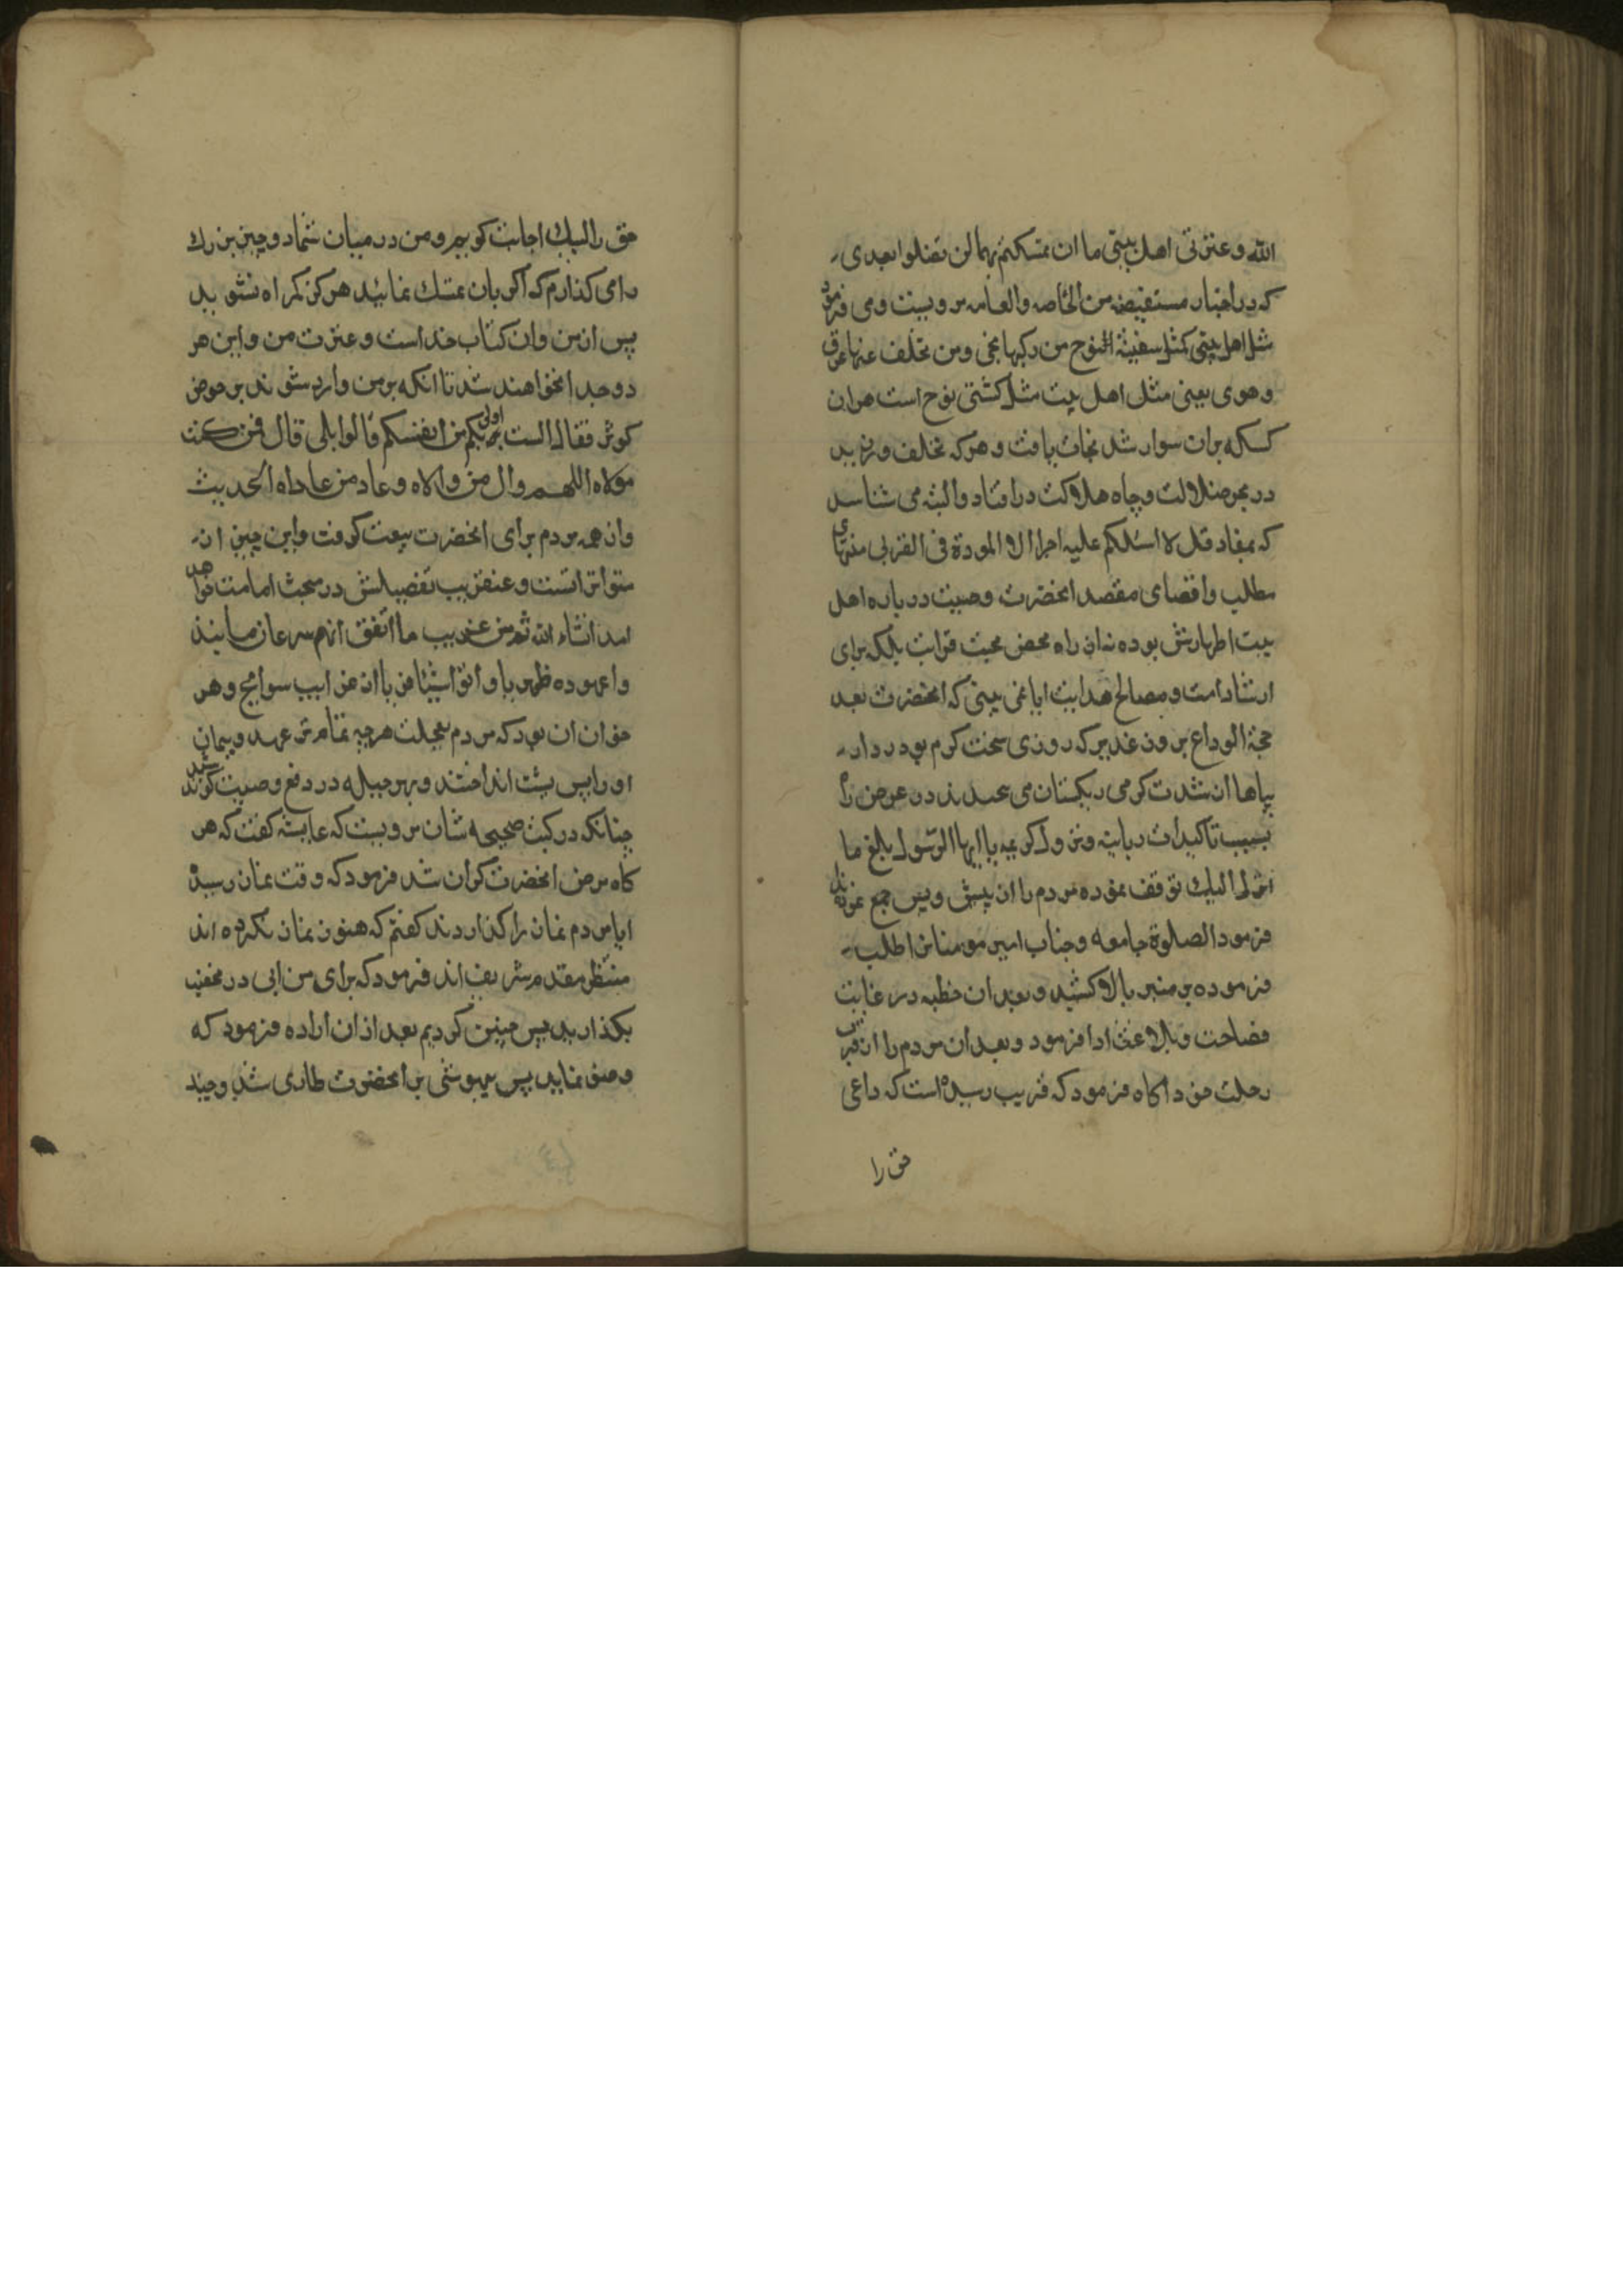 الله و عترتی اهل بیتی ما ان تمسکتم بهما لن تضلوا بعدی
که در اخبار مستفیضه من الخاصه والعامه مرویست و می فرمود
مثل اهل بیتی کمثل سفینة نوح من رکبها نجی ومن تخلف عنها غرق
وهوی یعنی مثل اهل بیت مثل کشتی نوح است هران
کسکه بران سوار شد نجات یافت و هرکه تخلف ورزید
در بحر ضلالت وچاه هلاکت درافتاد والبته می شناسد
که بمفاد قل لا اسئلکم علیه اجرا الا المودة فی القربی منتهای
مطلب واقصای مقصد انحضرت وصیت درباره اهل
بیت اطهارش بوده نه از راه محض محبت قرابت بلکه برای
ارشاد امت و مصالح هدایت ایا نمی بینی که انحضرت بعد
حجة الوداع بروز غدیر که روزی سخت کرم بود ردا
بپاها از شدت کرمی ریکستان می در عرض راه
بسبب تاکیدات ربانیه ونزول کریمه یا ایها الرسول بلغ ما
انزل الیک توقف نموده مردم را از پیش و پس جمع نمودند
فرمود الصلوة جامعه وجناب امیر مومنان را طلب
فرموده بر منبر بالا کشید و بعد ازان خطبه در غایت
فصاحت وبلاغت ادا فرمود و بعد ازان مردم را از قرب
رحلت خود اکاه فرمود که قریب رسیده است که داعی
حق را
حق را لبیک اجابت کویم و من در میان شما دو چیز بزرک
را می کذارم که اکر بان تمسک نمائید هرکز کمراه نشوید
پس از من وان کتاب خداست وعترت من واین هر
دو جدا نخواهند شد تا انکه بر من وارد شوند بر حوض
کوثر فقال الست اولی بکم من انفسکم قالوا بلی قال فمن کنت
مولاه اللهم وال من والاه وعاد من عاداه الحدیث
واز همه مردم برای انحضرت بیعت کرفت واین چیز از
متواتراتست وعنقریب تفصیلش در مبحث امامت خواهد
امد انشاء الله ثم من غریب ما اتفق انهم سرعان ما نبذ
وا عهوده ظهریا واتوا شیئا فریا از غرایب سوانح وهر
حق ازان بود که مردم بعجلت هرچه تمامتر عهد و پیمان
او را پس پشت انداختند وبهر حیله در دفع وصیت کوشیدند
چنانکه در کتب صحیحه شان مرویست که عایشه کفت که هر
کاه مرض انحضرت کران شد فرمود که وقت نماز رسیده
ایا مردم نماز را کذاردند کفتم که هنوز نماز نکرده اند
منتظر مقدم شریف اند فرمود که برای من ابی در مخضب
بکذارید پس چنین کردیم بعد ازان اراده فرمود که
وضو نماید پس بیهوشی بر انحضرت طاری شد وچند